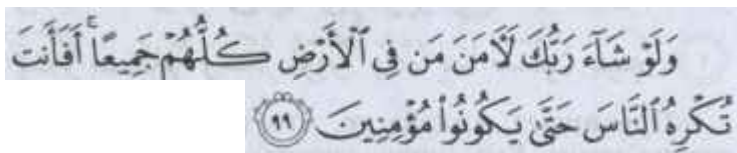 وَلَوْ شَآءَ رَبُّكَ لَأٓمَنَ مَن فِى ٱلْأَرْضِ كُلُّهُمْ جَمِيعًا ۚ أَفَأَنتَ
تُكْرِهُ ٱلنَّاسَ حَتَّىٰ يَكُونُوا۟ مُؤْمِنِينَ ۝٩٩